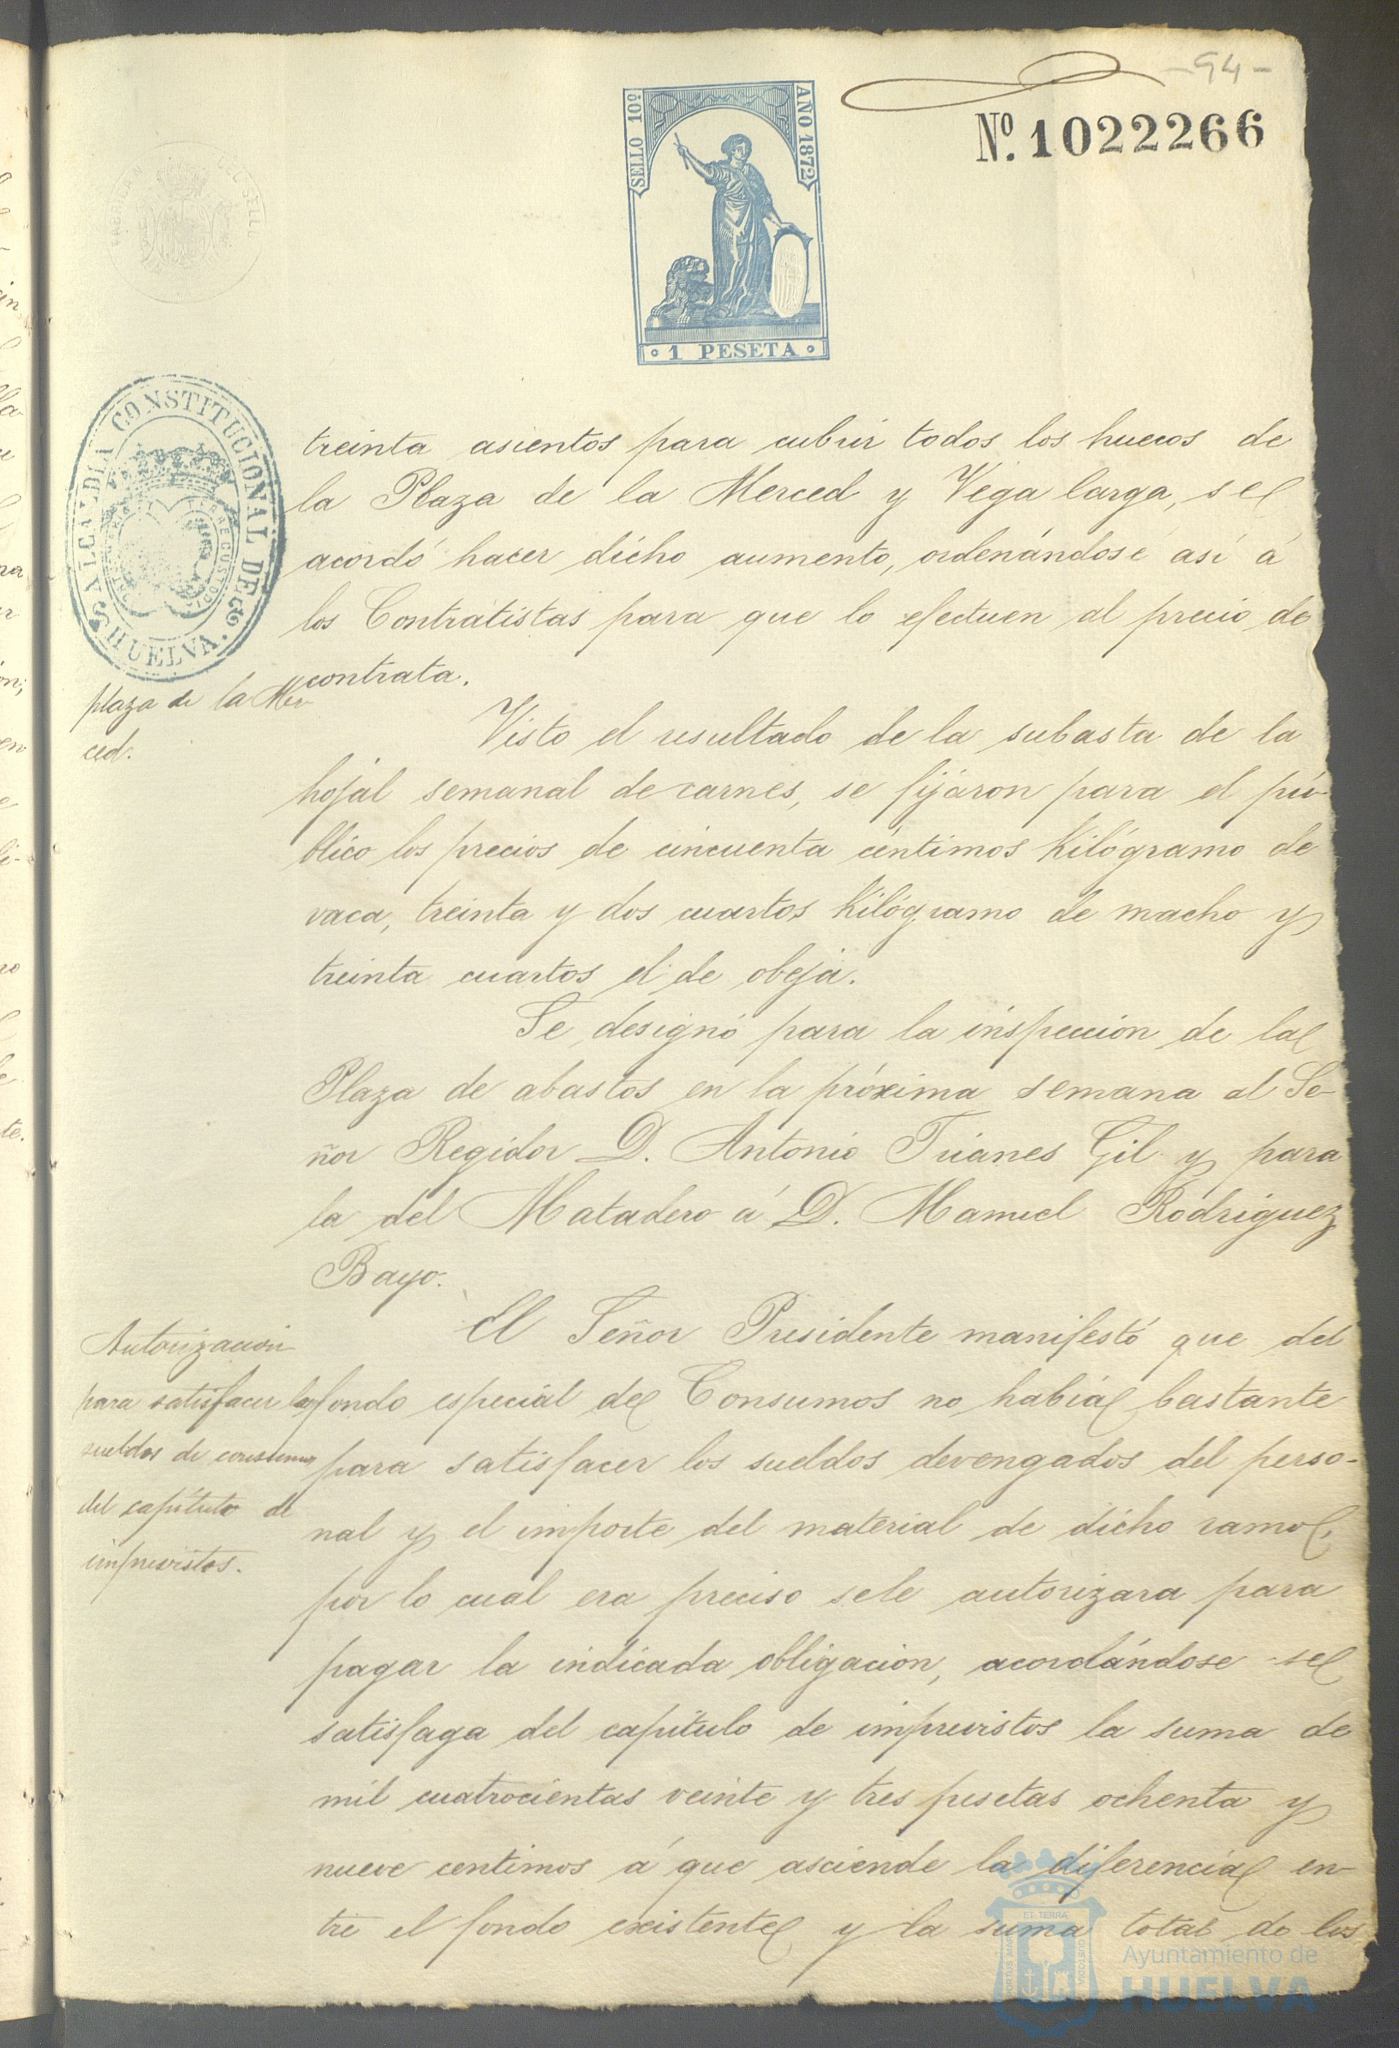 -94-
Nº. 1022266
SELLO 10º
AÑO 1872
1 PESETA
ALCALDIA CONSTITUCIONAL DE HUELVA
treinta asientos para cubrir todos los huecos de
la Plaza de la Merced y Vega larga, se
acordó hacer dicho aumento, ordenándose así á
los Contratistas para que lo efectuen al precio de
contrata.
plaza de la Mer
ced.
Visto el resultado de la subasta de la
hoja semanal de carnes, se fijaron para el pú-
blico los precios de cincuenta céntimos Kilógramo de
vaca, treinta y dos cuartos Kilógramo de macho y
treinta cuartos el de obeja.
Se designó para la inspeccion de la
Plaza de abastos en la próxima semana al Se-
ñor Regidor D. Antonio Trianes Gil y para
la del Matadero á D. Manuel Rodriguez
Bayo.
Autorizacion
para satisfacer los
sueldos de consumos
del capítulo de
imprevistos.
El Señor Presidente manifestó que del
fondo especial de Consumos no había bastante
para satisfacer los sueldos devengados del perso-
nal y el importe del material de dicho ramo,
por lo cual era preciso se le autorizara para
pagar la indicada obligacion, acordándose se
satisfaga del capítulo de imprevistos la suma de
mil cuatrocientas veinte y tres pesetas ochenta y
nueve centimos á que asciende la diferencia en-
tre el fondo existente y la suma total de los
Ayuntamiento de
HUELVA